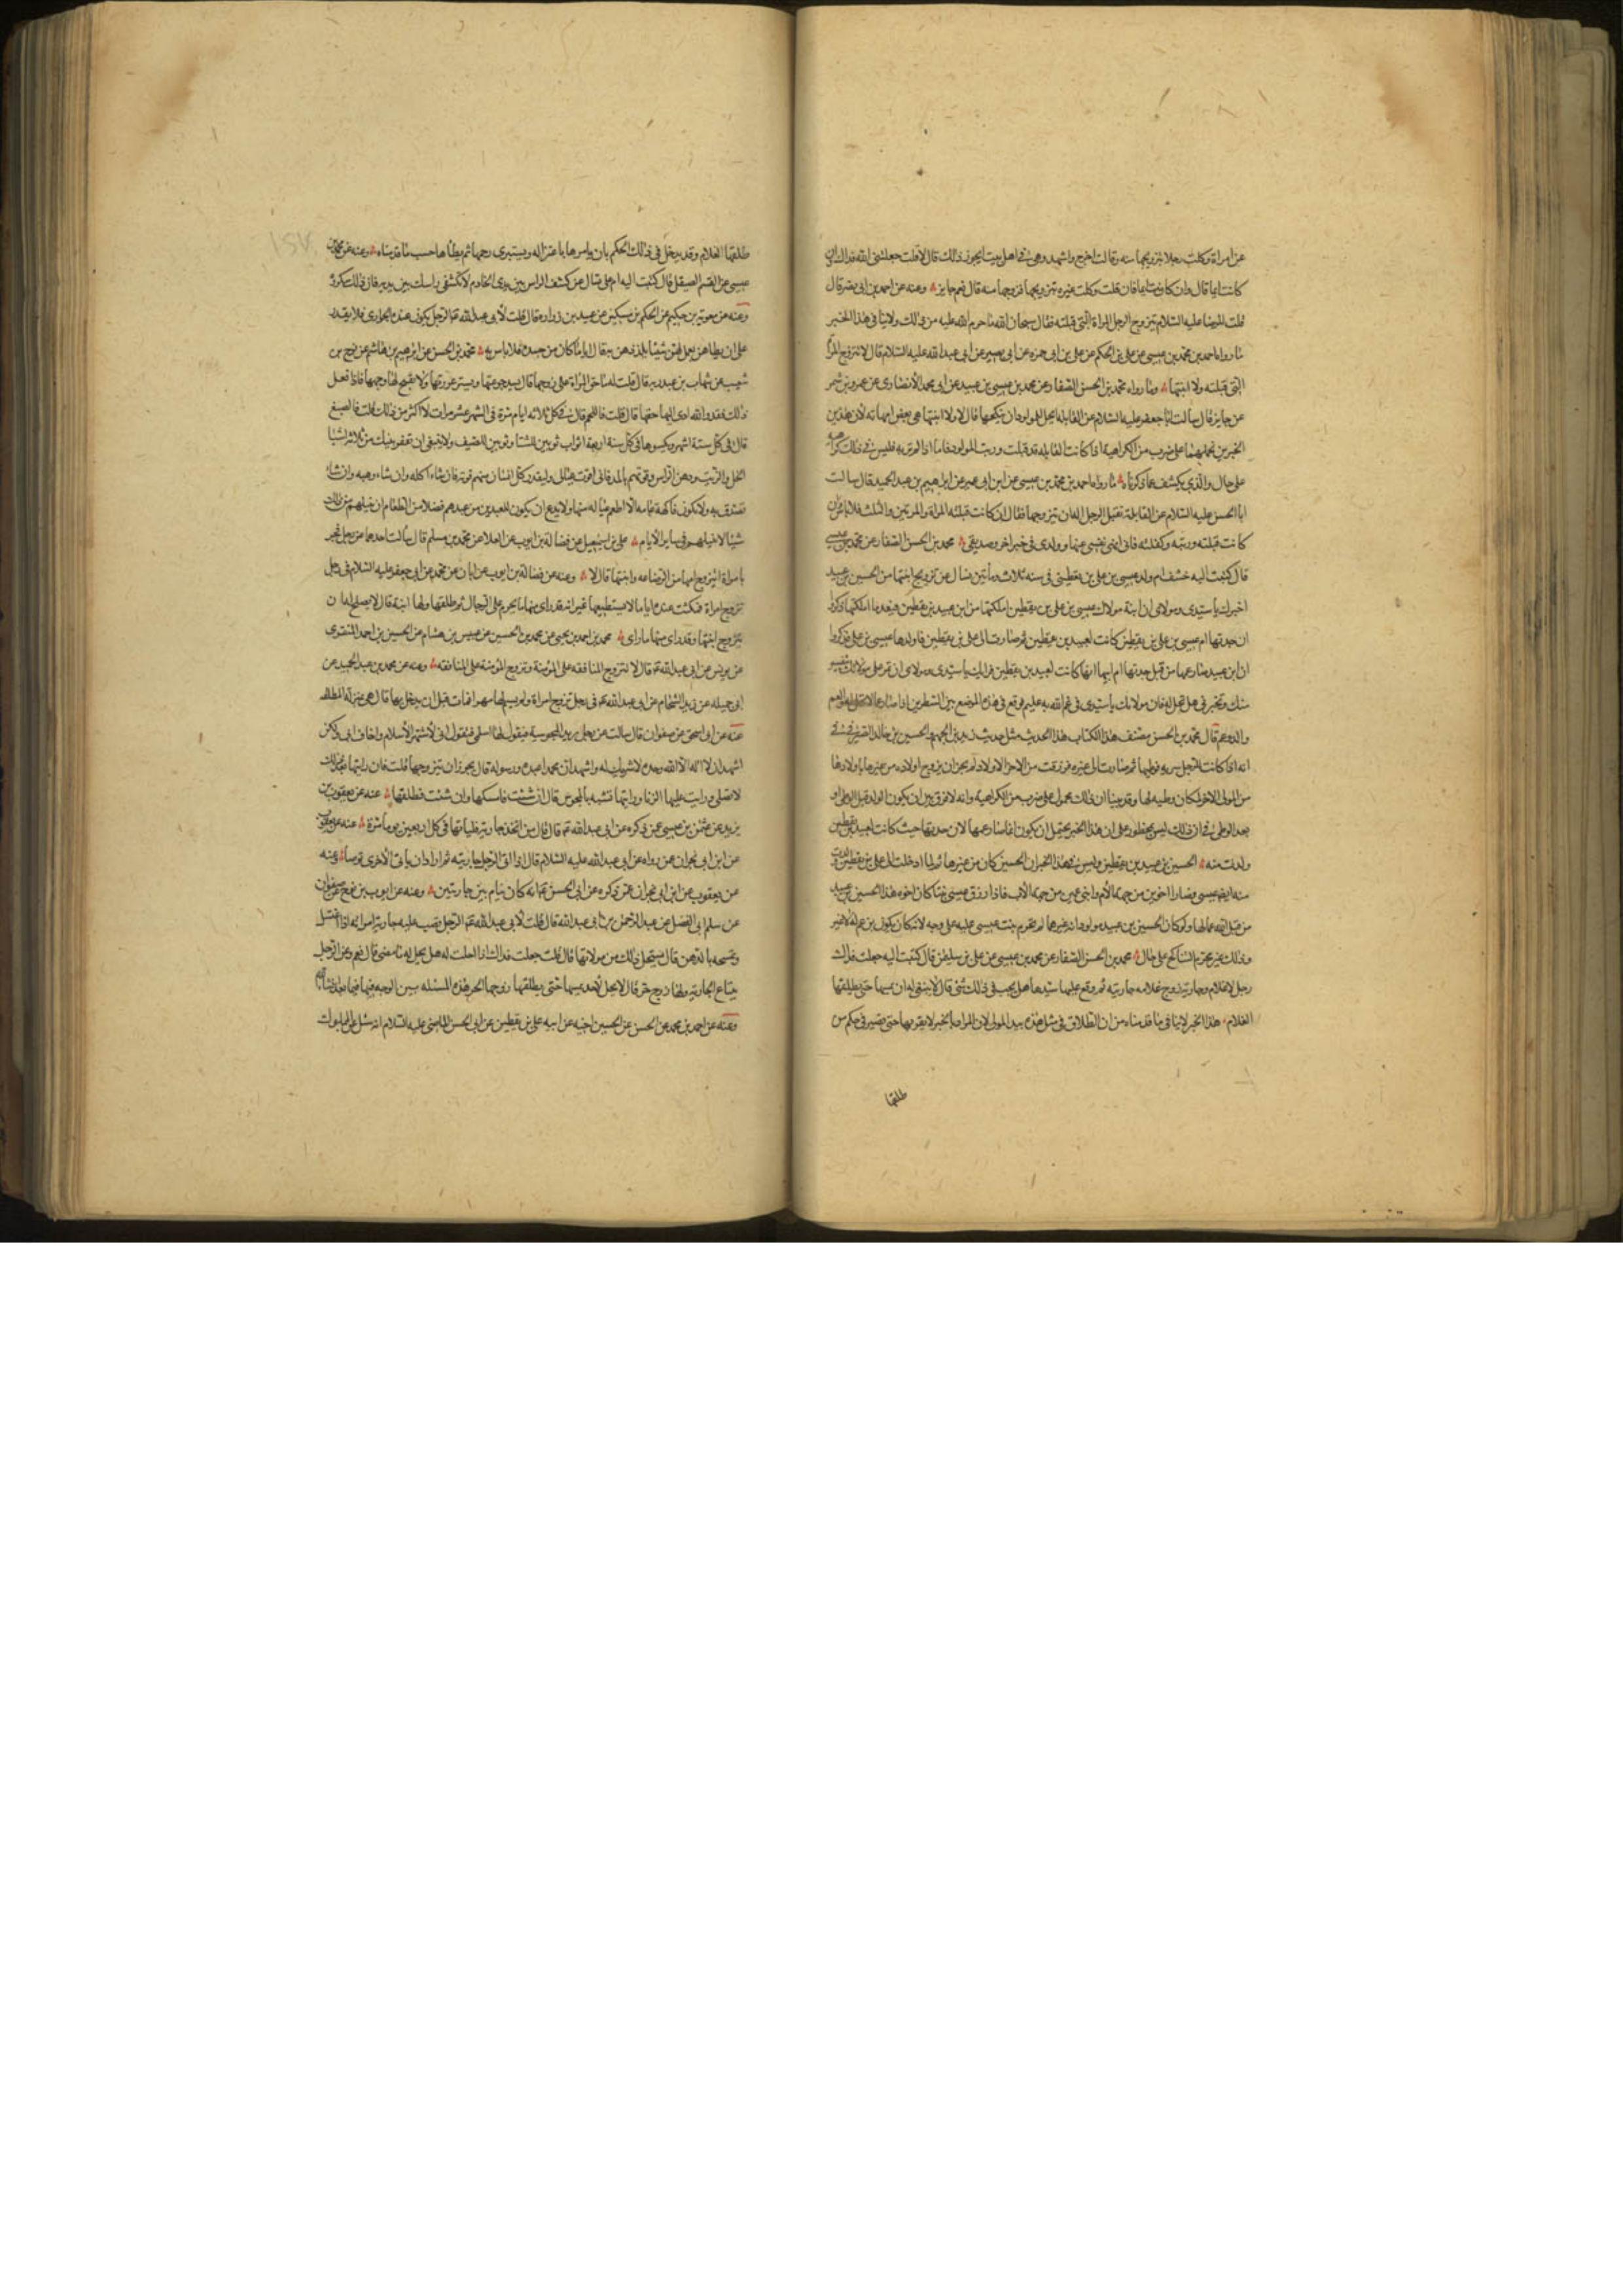 عن امراة وكلت رجلا بتزويجها منه وقالت اخرج واشهد وهي في اهل بيت ايجوز ذلك قال لا قلت جعلني الله فداك وان
كانت ايما قال وان كانت ايما فان قلت وكلت غيره بتزويجها فزوجها منه قال نعم جايز وعنه عن احمد بن ابي نصر قال
قلت للرضا عليه السلام يتزوج الرجل المراة التي قبلته فقال سبحان الله ما حرم الله عليه من ذلك ولا ينافي هذا الخبر
ما رواه احمد بن محمد بن عيسى عن علي بن الحكم عن علي بن ابي حمزه عن ابي بصير عن ابي عبد الله عليه السلام قال لا تتزوج المراة
التي قبلته ولا ابنتها وما رواه محمد بن الحسن الصفار عن محمد بن عيسى بن عبيد عن ابي محمد الانصاري عن عمرو بن شمر
عن جابر قال سالت ابا جعفر عليه السلام عن القابلة يحل للمولود ان ينكحها قال لا ولا ابنتها هي بعض امهاته لان هذين
الخبرين نحملهما على ضرب من الكراهية اذا كانت القابلة قد قبلت وربت المولود فاما اذا لم تربه فليس في ذلك كراهية
على حال والذي يكشف عما ذكرناه ما رواه احمد بن محمد بن عيسى عن ابن ابي عمير عن ابراهيم بن عبد الحميد قال سالت
ابا الحسن عليه السلام عن القابلة تقبل الرجل اله ان يتزوجها فقال ان كانت قبلته المرة والمرتين والثلث فلا باس وان
كانت قبلته وربته وكفلته فاني انهى نفسي عنها وولدي وفي خبر اخر وصديقي محمد بن الحسن الصفار عن محمد بن عيسى
قال كتبت اليه خشف ام ولد عيسى بن علي بن يقطين في سنه ثلاث ومأتين تسال عن تزويج ابنتها من الحسين بن عبيد
اخبرك يا سيدي ومولاي ان ابنة مولاك عيسى بن علي بن يقطين املكتها من ابن عبيد بن يقطين فبعد ما املكتها ذكروا
ان جدتها ام عيسى بن علي بن يقطين كانت لعبيد بن يقطين ثم صارت الى علي بن يقطين فاولدها عيسى بن علي فذكروا
ان ابن عبيد صار عمها من قبل جدتها ام ابيها انها كانت لعبيد بن يقطين فرايك يا سيدي ومولاي ان تمن على مولاتك بتفسير
منك وتخبرني هل تحل له فان مولاتك يا سيدي في غم الله به عليم فوقع في هذا الموضع بين السطرين اذا صار عما لا تحل له والعم
والد وعم قال محمد بن الحسن مصنف هذا الكتاب هذا الحديث مثل حديث زيد بن الجهم والحسين بن خالد الصيرفي في
انه اذا كانت للرجل سريه فوطيها ثم صارت الى غيره فرزقت من الاخر الاولاد لم يجز ان يزوج اولاده من غيرها باولادها
من المولى الاخر لمكان وطيه لها وقد بينا ان ذلك محمول على ضرب من الكراهية وانه لا فرق بين ان يكون الولد قبل الوطي او
بعد الوطي في ان ذلك ليس بمحظور على ان هذا الخبر يحتمل ان يكون انما صار عمها لان جدتها حيث كانت لعبيد بن يقطين
ولدت منه الحسين بن عبيد بن يقطين وليس في هذا الخبر ان الحسين كان من غيرها ثم لما ادخلت الى علي بن يقطين ولدت
منه ايضا عيسى فصارا اخوين من جهة الام وابني عمين من جهة الاب فاذا رزق عيسى بنتا كان اخوه هذا الحسين بن عبيد
من قبل امه عما لها ولو كان الحسين بن عبيد مولودا من غيرها لم تحرم بنت عيسى عليه على وجه لانه كان يكون بن عم له لا غير
وذلك غير محرم التناكح على حال محمد بن الحسن الصفار عن محمد بن عيسى عن علي بن سليمن قال كتبت اليه جعلت فداك
رجل له غلام وجارية زوج غلامه جاريته ثم وقع عليها سيدها هل يجب في ذلك شئ قال لا ينبغي له ان يمسها حتى يطلقها
الغلام هذا الخبر لا ينافي ما قدمناه من ان الطلاق في مثل هذه بيد المولى لان المراد بالخبر لا يقربها حتى تصير في حكم من
طلقها
طلقها الغلام وقد يدخل في ذلك الحكم بان يامرها باعتزاله ويستبري رحمها ثم يطأها حسب ما قدمناه وعنه عن محمد بن
عيسى عن القسم الصيقل قال كتبت اليه ام علي تسال عن كشف الراس بين يدي الخادم لا تكشفي راسك بين يديه فان ذلك مكروه
وعنه عن معوية بن حكيم عن الحكم بن مسكين عن عبيد بن زراره قال قلت لأبي عبد الله ع الرجل يكون عنده الجواري فلا يقدر
على ان يطأهن يعمل لهن شيئا يلذذهن به قال اما ما كان من جسده فلا باس به محمد بن الحسن عن ابرهيم بن هاشم عن نوح بن
شعيب عن شهاب بن عبد ربه قال قلت له ما حق المراة على زوجها قال يسد جوعتها ويستر عورتها ولا يقبح لها وجها فاذا فعل
ذلك فقد والله ادى اليها حقها قال قلت فالدهن قال غبا يوما ويوم لا قلت فاللحم قال في كل ثلاثه ايام مرة في الشهر عشر مرات لا اكثر من ذلك قلت فالصبغ
قال في كل ستة اشهر ويكسوها في كل سنة اربعة اثواب ثوبين للشتا وثوبين للصيف ولا ينبغي ان تفقر بيتك من ثلاثة اشيا
الخل والزيت ودهن الراس وقوتهم بالمد فاني اقوت عيالي وليقدر كل انسان منهم قوته فان شاء اكله وان شاء وهبه وان شاء
تصدق به ولا تكون فاكهة عامه الا اطعم عياله منها ولا يدع ان يكون للعيدين من عيدهم فضلا من الطعام ان ينيلهم من ذلك
شيئا لا ينيلهم في ساير الأيام علي بن اسمعيل عن فضالة بن ايوب عن العلا عن محمد بن مسلم قال سألت احدهما عن رجل فجر
بامراة ايتزوج امها من الرضاعه وابنتها قال لا وعنه عن فضالة بن ايوب عن ابان عن محمد عن ابي جعفر عليه السلام في رجل
تزوج امراة فمكثت عنده اياما لا يستطيعها غير انه قد راى منها ما يحرم على الرجال ثم طلقها ولها ابنة قال لا يصلح له ان
يتزوج ابنتها وقد راى منها ما راى محمد بن احمد بن يحيى عن محمد بن الحسين عن عيسى بن هشام عن الحسين بن احمد المنقري
عن يونس عن ابي عبد الله ع قال لا تتزوج المنافقه على المؤمنة وتزوج المؤمنة على المنافقه وعنه عن محمد بن عبد الحميد عن
ابي جميله عن زيد الشحام عن ابي عبد الله ع في رجل تزوج امراة ولم يسم لها مهرا فمات قبل ان يدخل بها قال هي بمنزلة المطلقه
عنه عن ابي اسحق عن صفوان قال سالت عن رجل يريد المجوسية فيقول لها اسلمي فتقول اني لأشتهي الأسلام واخاف ابي ولكن
اشهد ان لا اله الا الله وحده لا شريك له واشهد ان محمدا عبده ورسوله قال يجوز ان يتزوجها قلت فان رايتها بعد ذلك
لا تصلي ورايت عليها الزنا ورايتها تشبه بالمجوس قال ان شئت فامسكها وان شئت فطلقها عنه عن يعقوب بن
يزيد عن عثمن بن عيسى عمن ذكره عن ابي عبد الله ع قال قال من اتخذ جارية فلياتها في كل اربعين يوما مرة عنه عن يعقوب
عن ابن ابي نجران عمن رواه عن ابي عبد الله عليه السلام قال اذا اتى الرجل جاريته ثم اراد ان ياتي الأخرى توضأ وعنه
عن يعقوب عن ابن ابي نجران عمن ذكره عن ابي الحسن ع انه كان ينام بين جاريتين وعنه عن ايوب بن نوح عن صفوان
عن سلم ابي الفضل عن عبد الرحمن بن ابي عبد الله قال قلت لأبي عبد الله ع الرجل تصب عليه جارية امراته اذا اغتسل
وتمسحه بالدهن قال يستحل ذلك من مولاتها قال قلت جعلت فداك اذا احلت له هل يحل له ما مضى قال نعم وعن الرجل
يبتاع الجارية ولها زوج حر قال لا يحل لأحد يمسها حتى يطلقها زوجها الحر هذه المسئله
وعنه عن احمد بن محمد عن الحسن عن الحسين اخيه عن ابيه علي بن يقطين عن ابي الحسن الماضي عليه السلام انه سئل عن المملوك